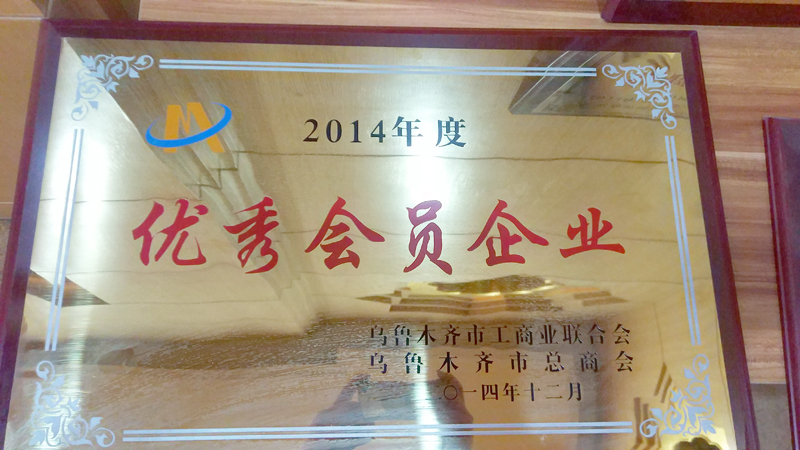 2014年度
优秀会员企业
乌鲁木齐市工商业联合会
乌鲁木齐市总商会
二〇一四年十二月